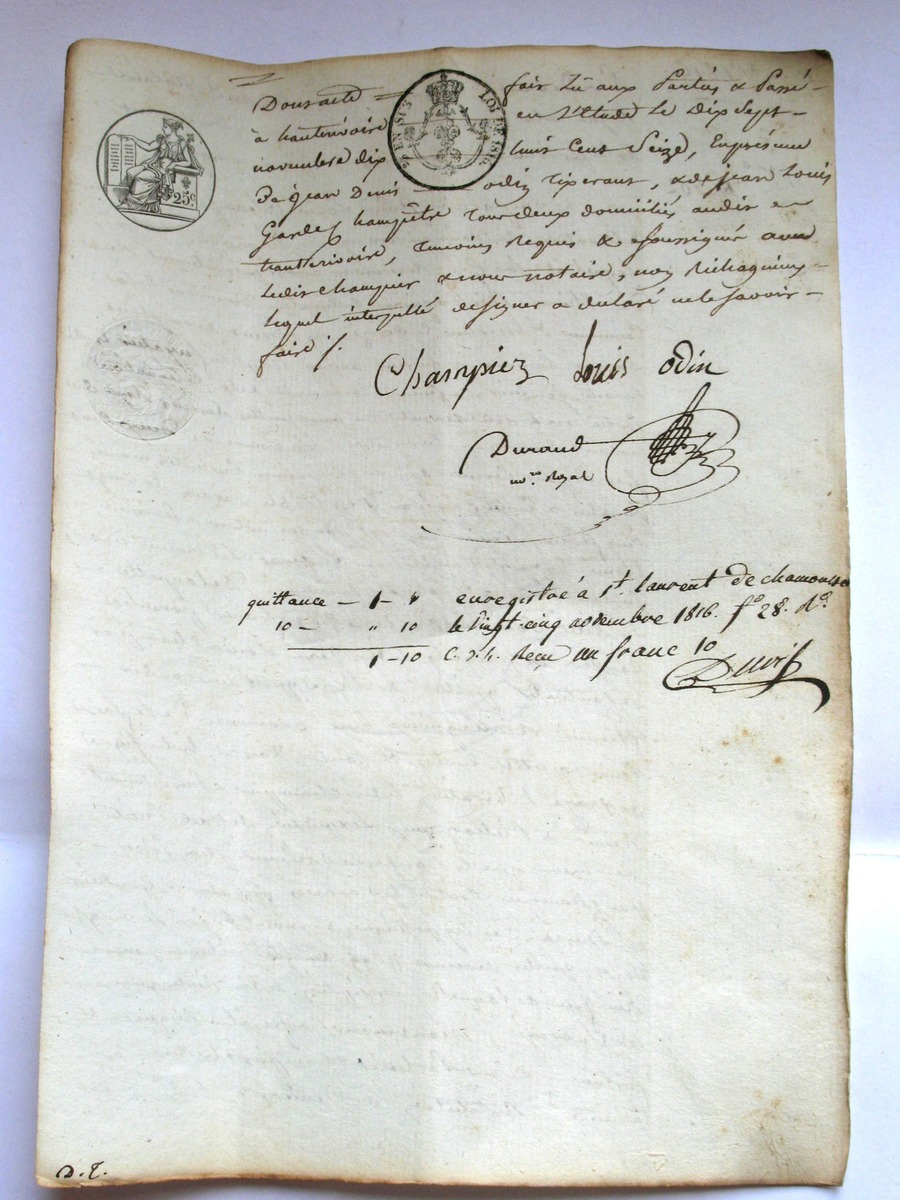 Dont acte fait Lû aux Parties & Passé
à hauterivoire en L'Etude Le dix Sept
novembre dix huit Cent Seize, En présence
De Jean Denis odin Tisserant, & de Jean Louis
Garde Champêtre Tous deux domiciliés audit
hauterivoire, Temoins Requis & soussignés avec
Ledit Champier & nous notaire, non
Lequel interpellé de signer a declaré ne le Savoir
faire /.
EN SUS
LOI DE 1816
25c
Champier Louis odin
Durand
nre Royal
quittance — 1 - " enregistré à St. laurent de chamousset
10 — " 10 le Vingt-cinq novembre 1816. fo 28. Ro
1 - 10 C. Reçu un franc 10
D. T.